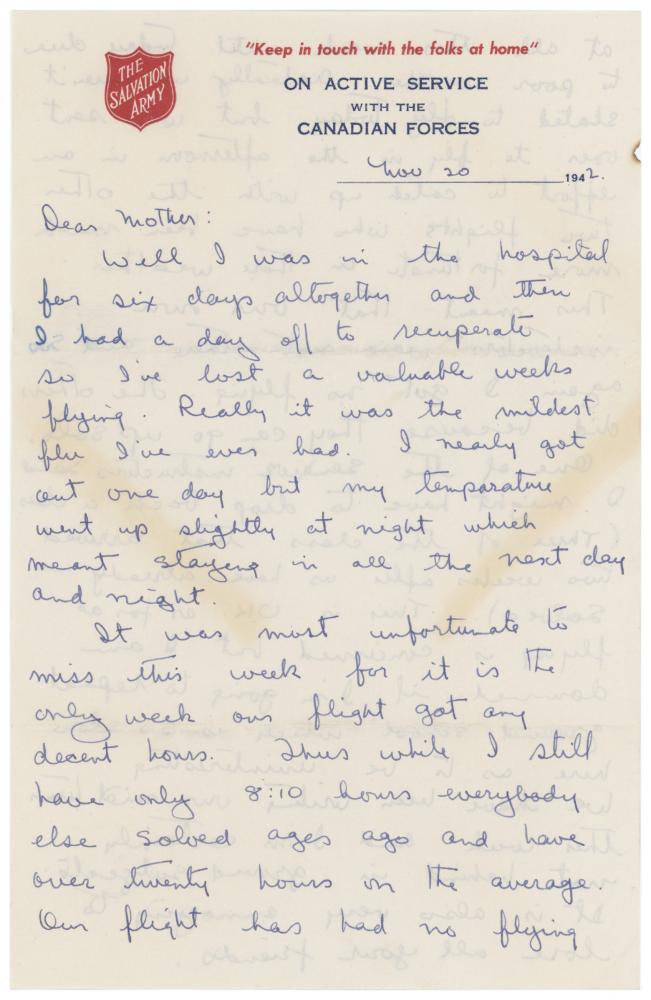 THE
SALVATION
ARMY
"Keep in touch with the folks at home"
ON ACTIVE SERVICE
WITH THE
CANADIAN FORCES
Nov 20 1942.
Dear Mother:
Well I was in the hospital
for six days altogether and then
I had a day off to recuperate
so I've lost a valuable weeks
flying. Really it was the mildest
flu I've ever had. I nearly got
out one day but my temparature
went up slightly at night which
meant staying in all the next day
and night.
It was most unfortunate to
miss this week for it is the
only week our flight got any
decent hours. Thus while I still
have only 8:10 hours everybody
else soloed ages ago and have
over twenty hours on the average.
Our flight has had no flying